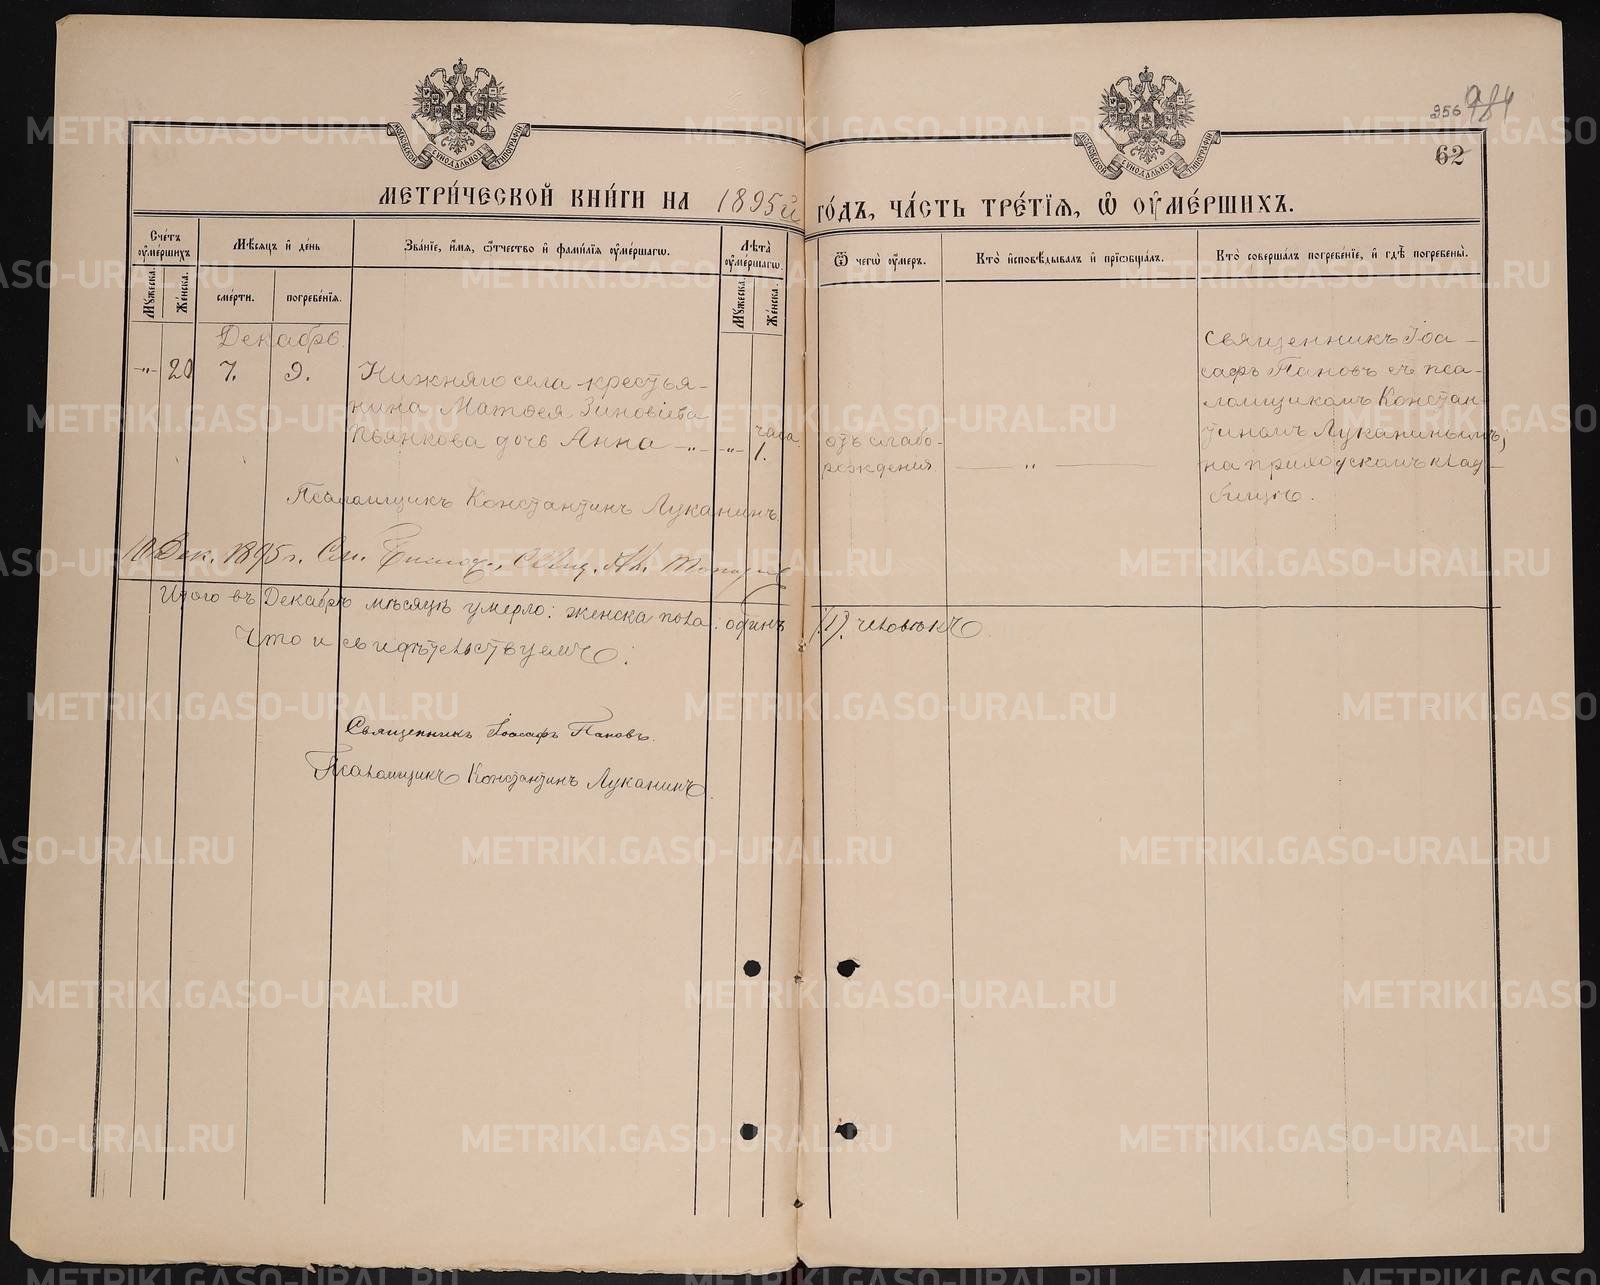 256 984
62
МОСКОВСКОЙ СѴНОДАЛЬНОЙ ТИПОГРАФІИ
МОСКОВСКОЙ СѴНОДАЛЬНОЙ ТИПОГРАФІИ
МЕТРИ́ЧЕСКОЙ КНИ́ГИ НА 1895й ГО́ДЪ, ЧА́СТЬ ТРЕ́ТІѦ, Ѿ ОУ҆МЕ́РШИХЪ.
Сче́тъ оу҆ме́ршихъ
Мѣ́сѧцъ и҆ де́нь
Зва́нїе, и҆́мѧ, ѻ҆́тчество и҆ фами́лїѧ оу҆ме́ршагѡ.
Лѣ́та оу҆ме́ршагѡ.
Ѿ чегѡ̀ оу҆́меръ.
Кто̀ и҆сповѣ́дывалъ и҆ прїѻбща́лъ.
Кто̀ соверша́лъ погребе́нїе, и҆ гдѣ̀ погребены̀.
Мꙋ́жеска.
Же́нска.
сме́рти.
погребе́нїѧ.
Мꙋ́жеска.
Же́нска.
Декабрь.
-"- 20 7. 9. Нижняго села крестья-
нина Матѳея Зиновіева
Пьянкова дочь Анна -"- -"- часа 1.
отъ слабо-
рожденія.
— " —
Священникъ Іоа-
сафъ Пановъ съ пса-
ломщикомъ Констан-
тиномъ Луканинымъ,
на приходскомъ клад-
бищѣ.
Псаломщикъ Константинъ Луканинъ.
10 Дек. 1895 г. См. Благоч. Свящ.
Итого въ Декабрѣ мѣсяцѣ умерло: женска пола: одинъ /1/. человѣкъ
Что и свидѣтельствуемъ:
Священникъ Іоасафъ Пановъ.
Псаломщикъ Константинъ Луканинъ.
METRIKI.GASO-URAL.RU